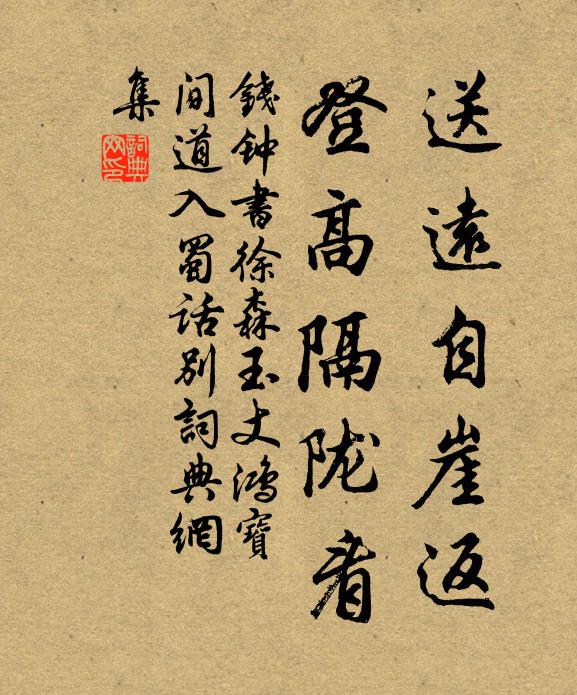 送遠自崖返
登高隔陇看
錢钟書徐森玉丈鸿寶
间道入蜀话别詞典網
集
詞典
网印